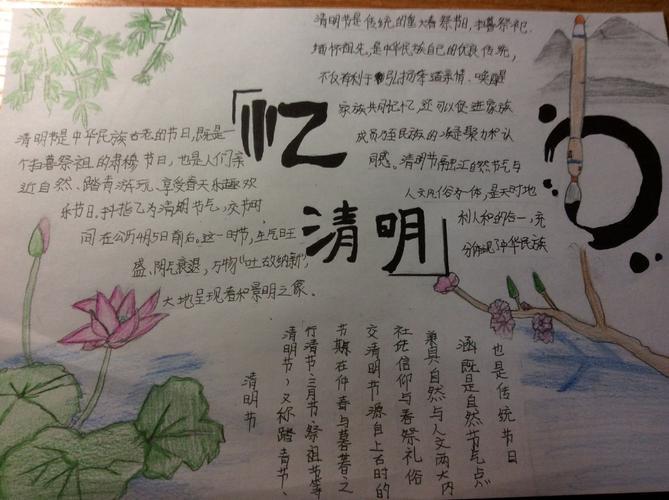 「忆
清明」
清明节是中华民族古老的节日,既是一
个扫墓祭祖的肃穆节日,也是人们亲
近自然、踏青游玩、享受春天乐趣欢
乐节日。斗指乙为清明节气,交节时
间在公历4月5日前后。这一时节,生气旺
盛、阴气衰退,万物“吐故纳新”,
大地呈现春和景明之象。
清明节是传统的重大春祭节日,扫墓祭祀、
缅怀祖先,是中华民族自己的优良传统,
不仅有利于弘扬孝道亲情、唤醒
家族共同记忆,还可以促进家族
成员乃至民族的凝聚力和认
同感。清明节融汇自然节气与
人文风俗为一体,是天时地
利人和的合一,充
分体现了中华民族
清明节
清明节,又称踏青节、
行清节、三月节、祭祖节等
节期在仲春与暮春之
交清明节源自上古时的
社祖信仰与春祭礼俗
兼具自然与人文两大内
涵既是自然节气点
也是传统节日